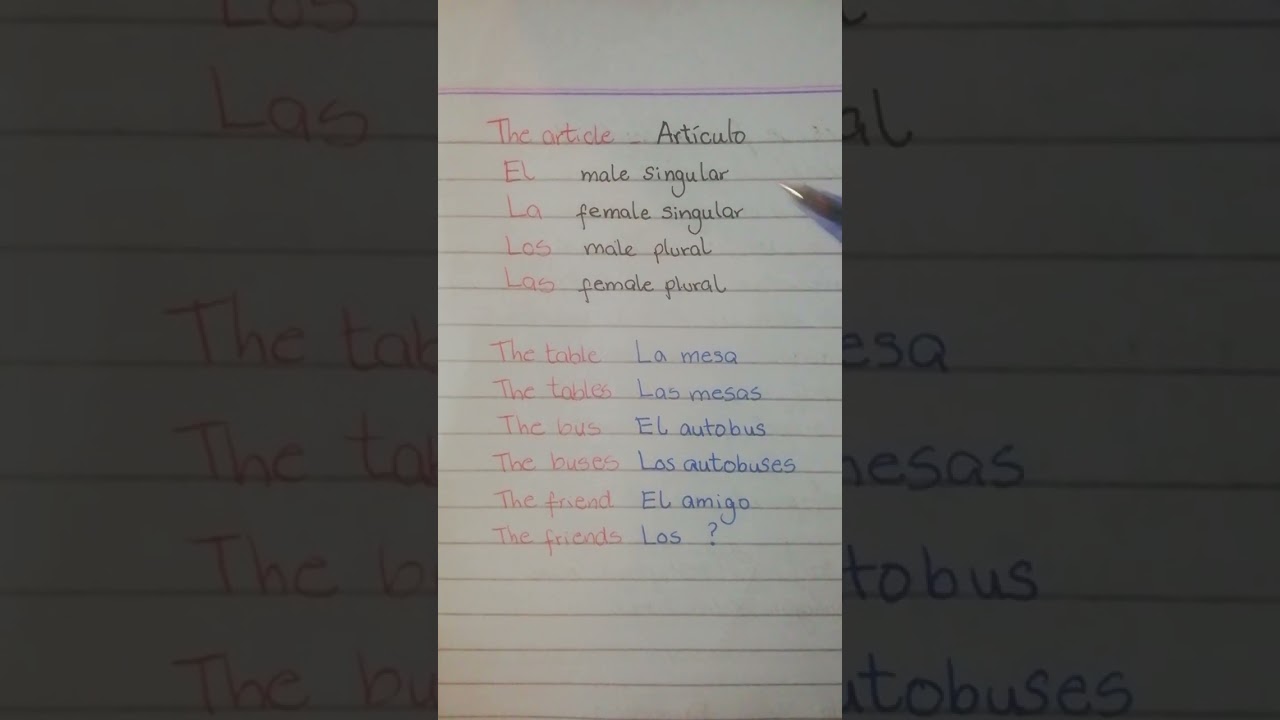 The article - Artículo
El male singular
La female singular
Los male plural
Las female plural
The table La mesa
The tables Las mesas
The bus El autobus
The buses Los autobuses
The friend El amigo
The friends Los ?